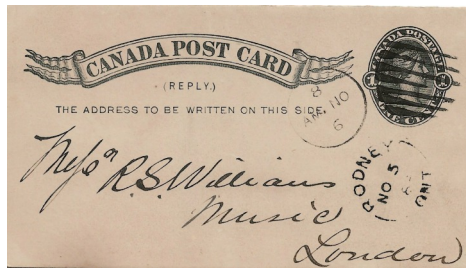 CANADA POST CARD
(REPLY.)
THE ADDRESS TO BE WRITTEN ON THIS SIDE.
CANADA POSTAGE
ONE CENT
8
AM NO
6
RODNEY
NO 5
ONT
R.S. Williams
Music
London